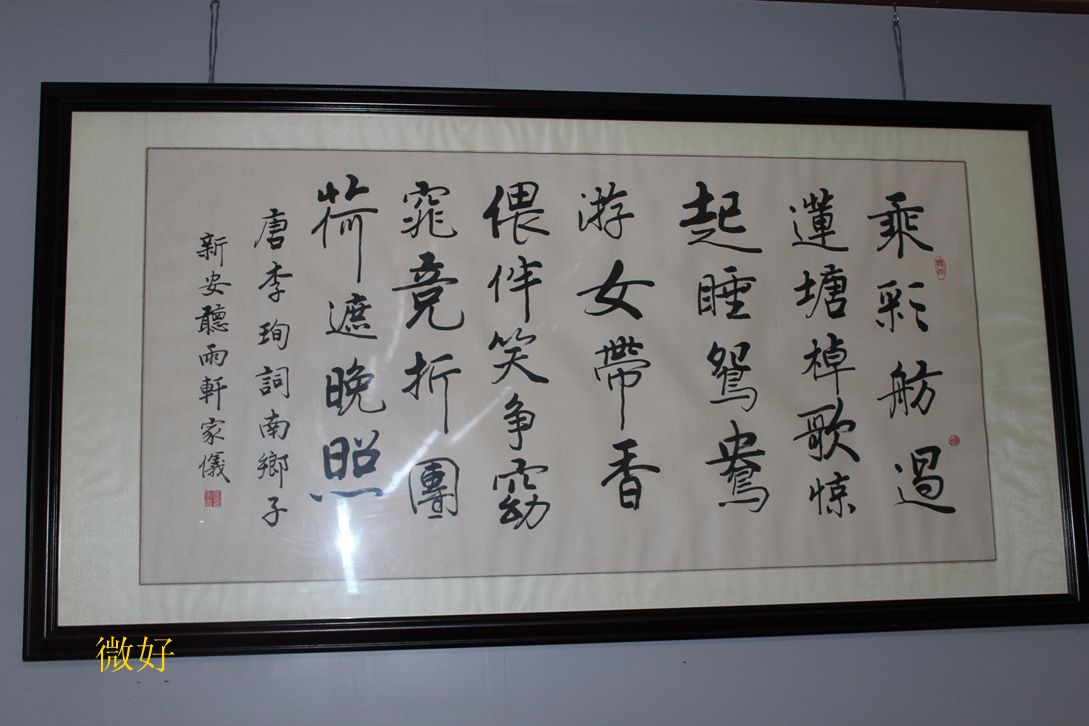 乘彩舫過
蓮塘棹歌惊
起睡鴛鴦
游女帶香
偎伴笑争窈
窕竟折團
荷遮晚照
唐李珣詞南鄉子
新安聽雨軒家儀
微好